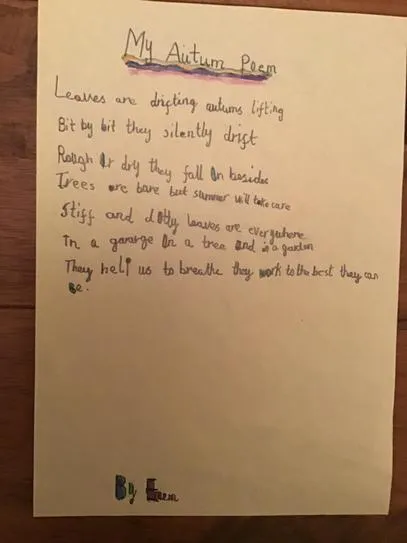 My Autum Poem
Leaves are drifting autums lifting
Bit by bit they silently drift
Rough Or dry they fall On besides
Trees are bare but summer will take care
Stiff and dolly leaves are everywhere
In a garage On a tree and in a garden
They help us to breathe they work to the best they can
be.
By